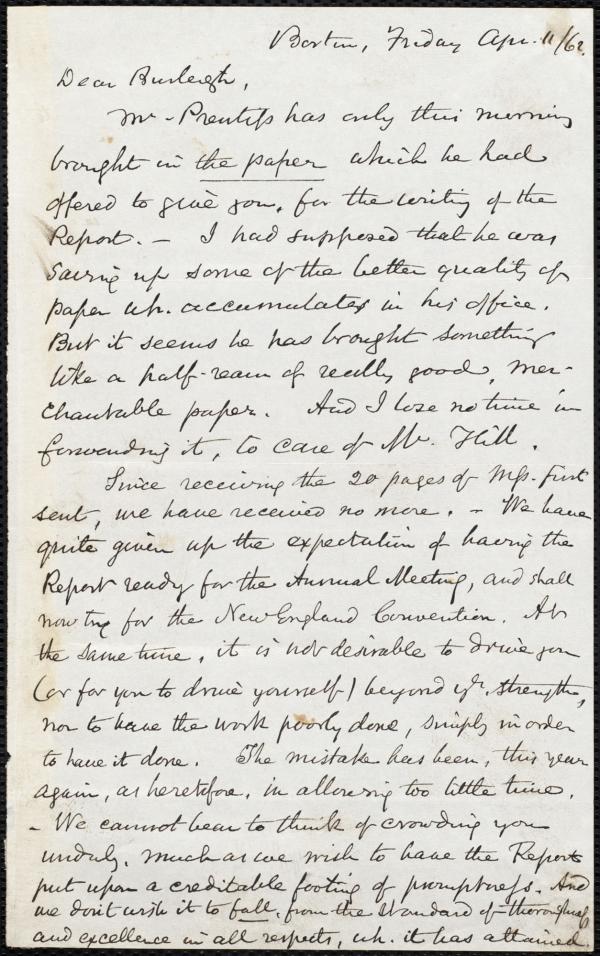 Boston, Friday Apr. 11/62.
Dear Burleigh,
Mr. Prentiss has only this morning
brought in the paper which he had
offered to give you, for the writing of the
Report. – I had supposed that he was
saving up some of the better quality of
paper wh. accumulates in his office.
But it seems he has brought something
like a half-ream of really good, mer-
chantable paper. And I lose no time in
forwarding it, to care of Mr. Hill.
Since receiving the 20 pages of Mss. first
sent, we have received no more. – We have
quite given up the expectation of having the
Report ready for the Annual Meeting, and shall
now try for the New England Convention. At
the same time, it is not desirable to drive you
(or for you to drive yourself) beyond yr. strength,
nor to have the work poorly done, simply in order
to have it done. The mistake has been, this year
again, as heretofore, in allowing too little time.
– We cannot bear to think of crowding you
unduly, much as we wish to have the Reports
put upon a creditable footing of promptness. And
we don't wish it to fall, from the standard of thoroughness
and excellence in all respects, wh. it has attained.